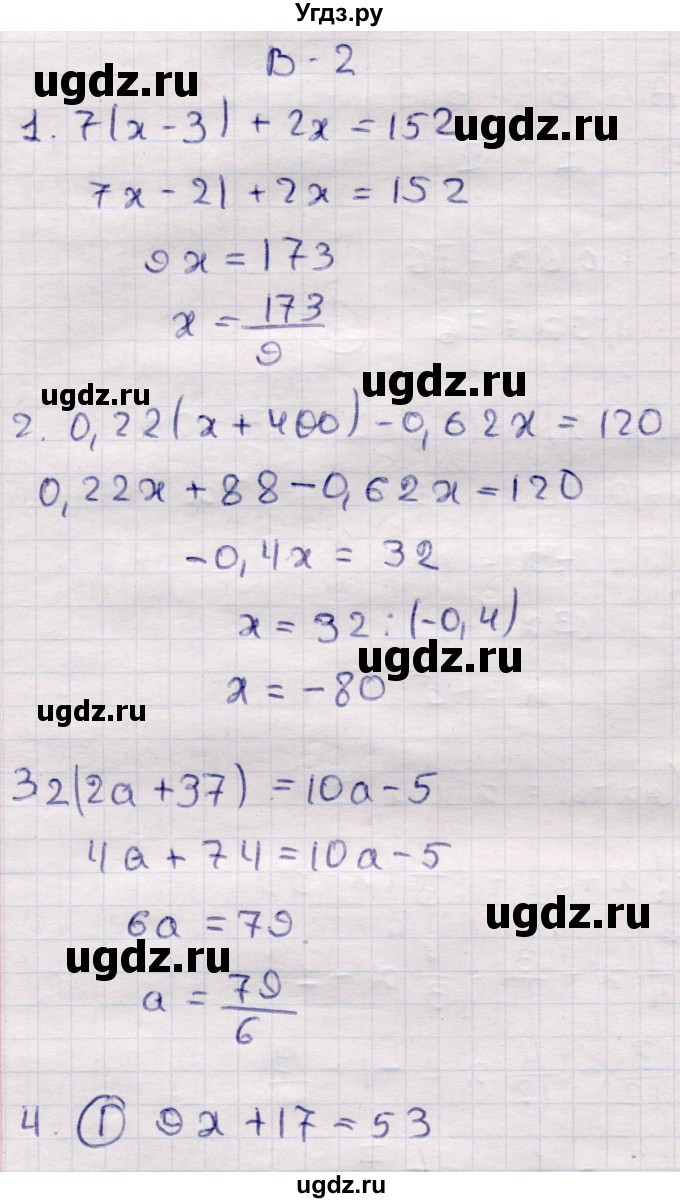 Угдз.ру
В - 2
ugdz.ru
1. 7(x - 3) + 2x = 152
ugdz.ru
7x - 21 + 2x = 152
9x = 173
x = 173/9
ugdz.ru
ugdz.ru
2. 0,22(x + 400) - 0,62x = 120
0,22x + 88 - 0,62x = 120
-0,4x = 32
x = 32 : (-0,4)
ugdz.ru
x = -80
ugdz.ru
3 2(2a + 37) = 10a - 5
4a + 74 = 10a - 5
ugdz.ru
6a = 79
ugdz.ru
a = 79/6
4. Г 9x + 17 = 53
ugdz.ru